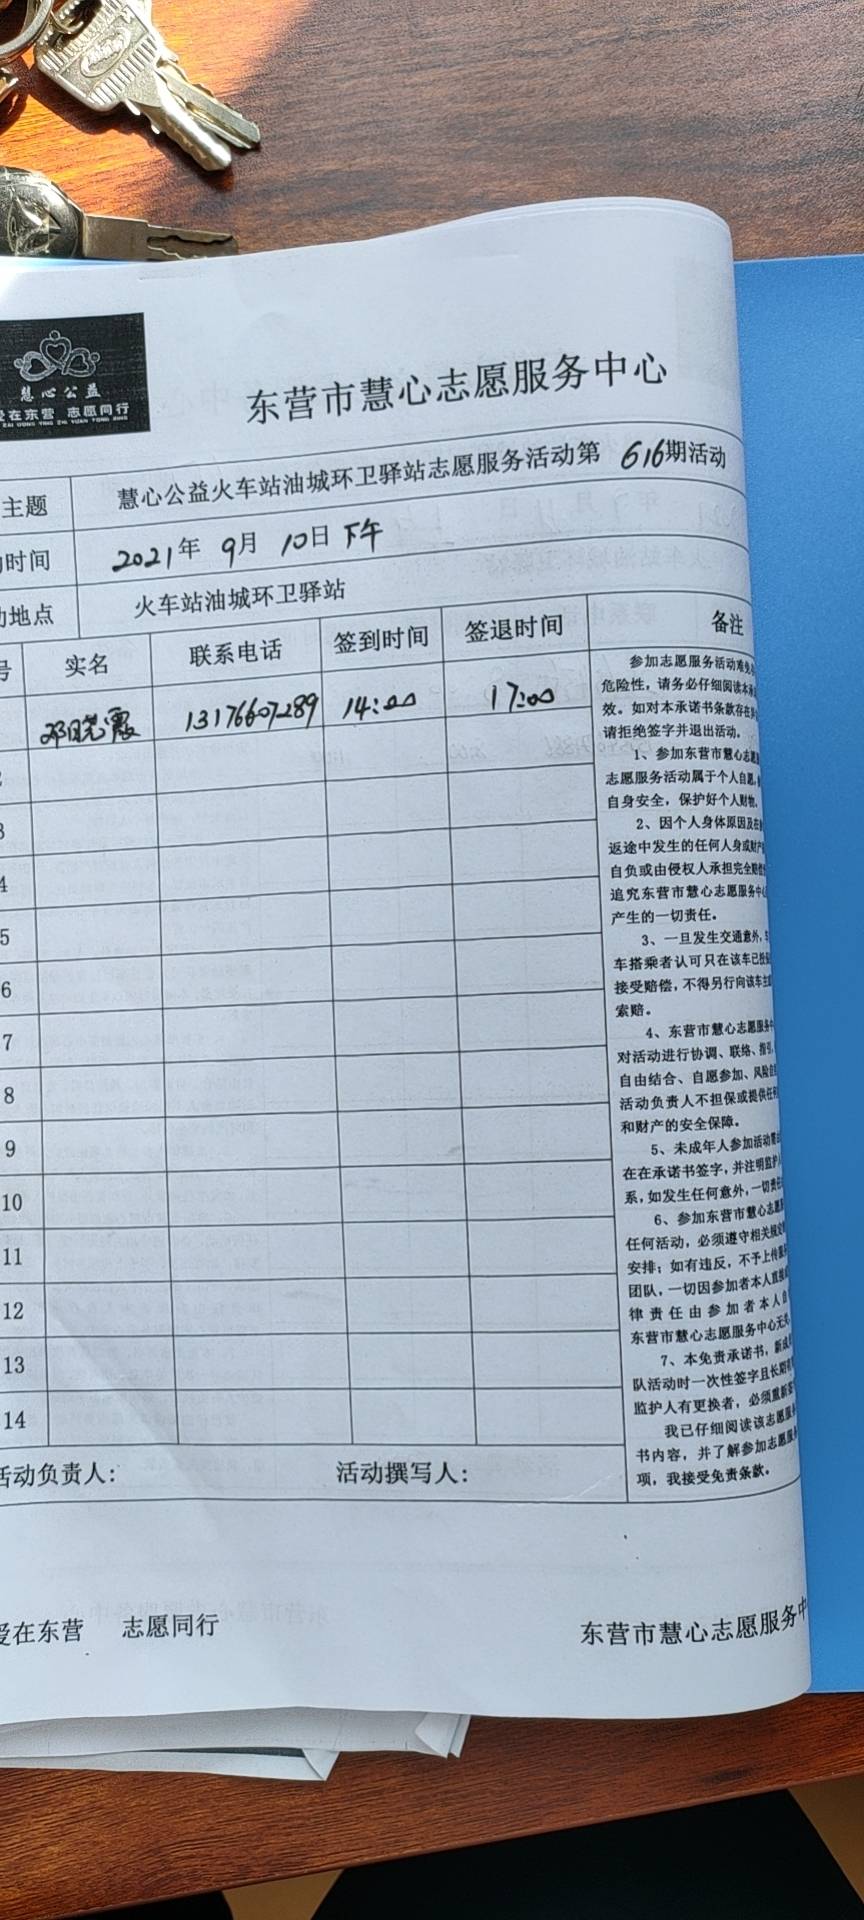 慧心公益
爱在东营 志愿同行
东营市慧心志愿服务中心
主题 慧心公益火车站油城环卫驿站志愿服务活动第 616期活动
动时间 2021年 9月 10日 下午
动地点 火车站油城环卫驿站
号 实名 联系电话 签到时间 签退时间 备注
邓晓霞 13176607289 14:00 17:00
2
3
4
5
6
7
8
9
10
11
12
13
14
参加志愿服务活动难免
危险性，请务必仔细阅读本承
效。如对本承诺书条款存在
请拒绝签字并退出活动。
1、参加东营市慧心志愿
志愿服务活动属于个人自愿，
自身安全，保护好个人财物。
2、因个人身体原因及在
返途中发生的任何人身或财产
自负或由侵权人承担完全赔偿
追究东营市慧心志愿服务中心
产生的一切责任。
3、一旦发生交通意外，
车搭乘者认可只在该车已投
接受赔偿，不得另行向该车主
索赔。
4、东营市慧心志愿服务中
对活动进行协调、联络、指引，
自由结合、自愿参加、风险自
活动负责人不担保或提供任何
和财产的安全保障。
5、未成年人参加活动需
在在承诺书签字，并注明监护
系，如发生任何意外，一切责任
6、参加东营市慧心志愿
任何活动，必须遵守相关规定
安排；如有违反，不予上传服
团队，一切因参加者本人直接
律责任由参加者本人自
东营市慧心志愿服务中心无关。
7、本免责承诺书，新成
队活动时一次性签字且长期有
监护人有更换者，必须重新签
我已仔细阅读该志愿服务
书内容，并了解参加志愿服务
项，我接受免责条款。
活动负责人： 活动撰写人：
爱在东营 志愿同行 东营市慧心志愿服务中